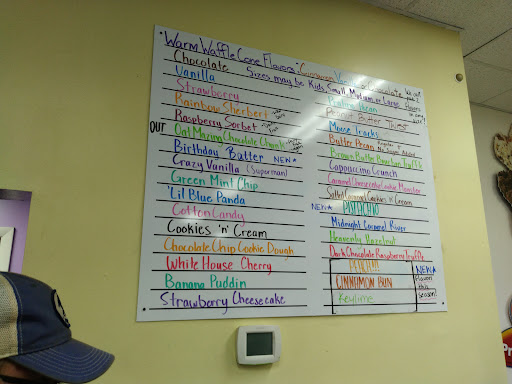 "Warm Waffle Cone Flavors" Cinnamon, Vanilla, Chocolate
Sizes may be Kids, Small, Medium, or Large
Chocolate
Vanilla
Strawberry
Rainbow Sherbert
Raspberry Sorbet
OUT Oat Mazing Chocolate Chunk
Birthday Batter NEW★
Crazy Vanilla (Superman)
Green Mint Chip
'Lil Blue Panda
Cotton Candy
Cookies 'n' Cream
Chocolate Chip Cookie Dough
White House Cherry
Banana Puddin
Strawberry Cheesecake
Pecan
Peanut Butter
Moose Tracks
Butter Pecan Regular &
No Sugar Added
Brown Butter Bourbon Truffle
Cappuccino Crunch
Caramel Cheesecake Cookie Monster
Salted Caramel Cookies 'n' Cream
NEW★ PISTACHIO
Midnight Caramel River
Heavenly Hazelnut
Dark Chocolate Raspberry Truffle
CINNAMON BUN
Keylime
NEW★
Flavors
this
season!